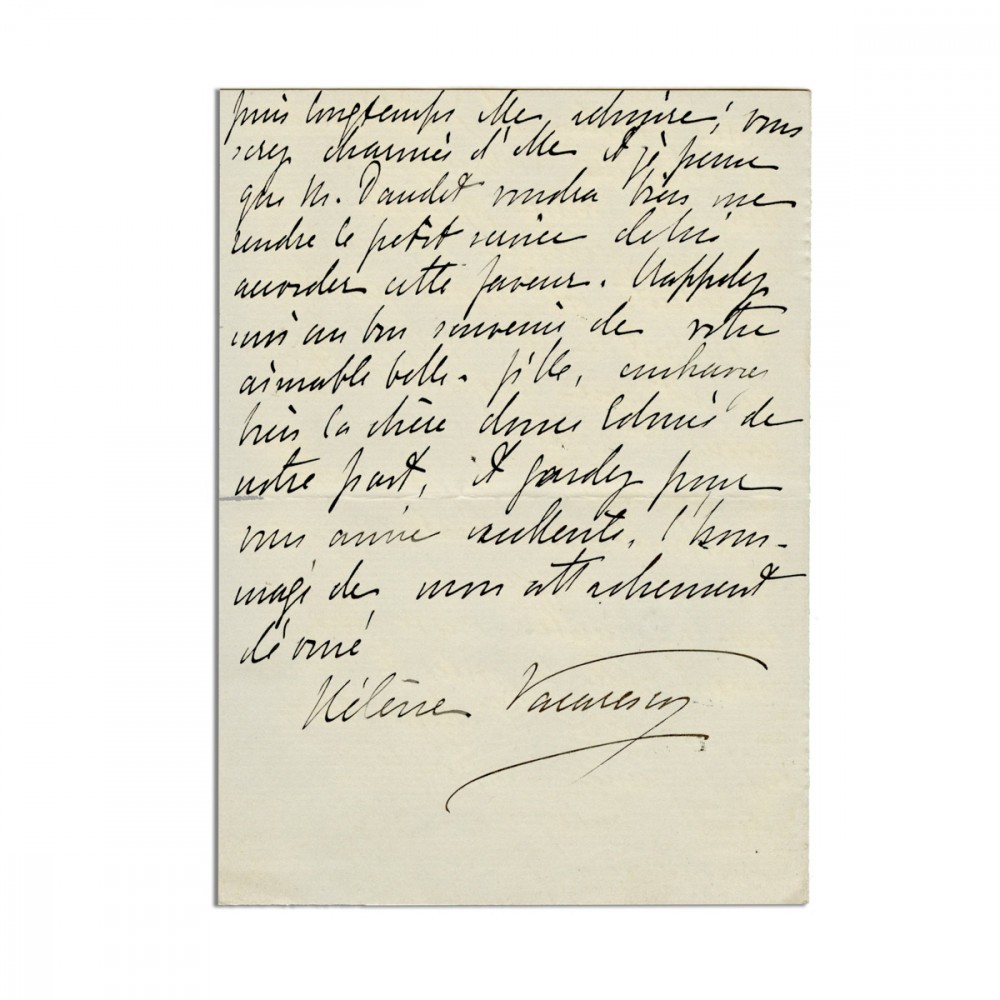 puis longtemps elle admire ; vous
serez charmés d'elle et je pense
que M. Daudet voudra bien me
rendre le petit service de lui
accorder cette faveur. Rappelez
moi au bon souvenir de votre
aimable belle-fille, embrassez
bien la chère douce Edmée de
notre part, et gardez pour
vous amie excellente, l'hom-
mage de mon attachement
dévoué
Hélène Vacaresco